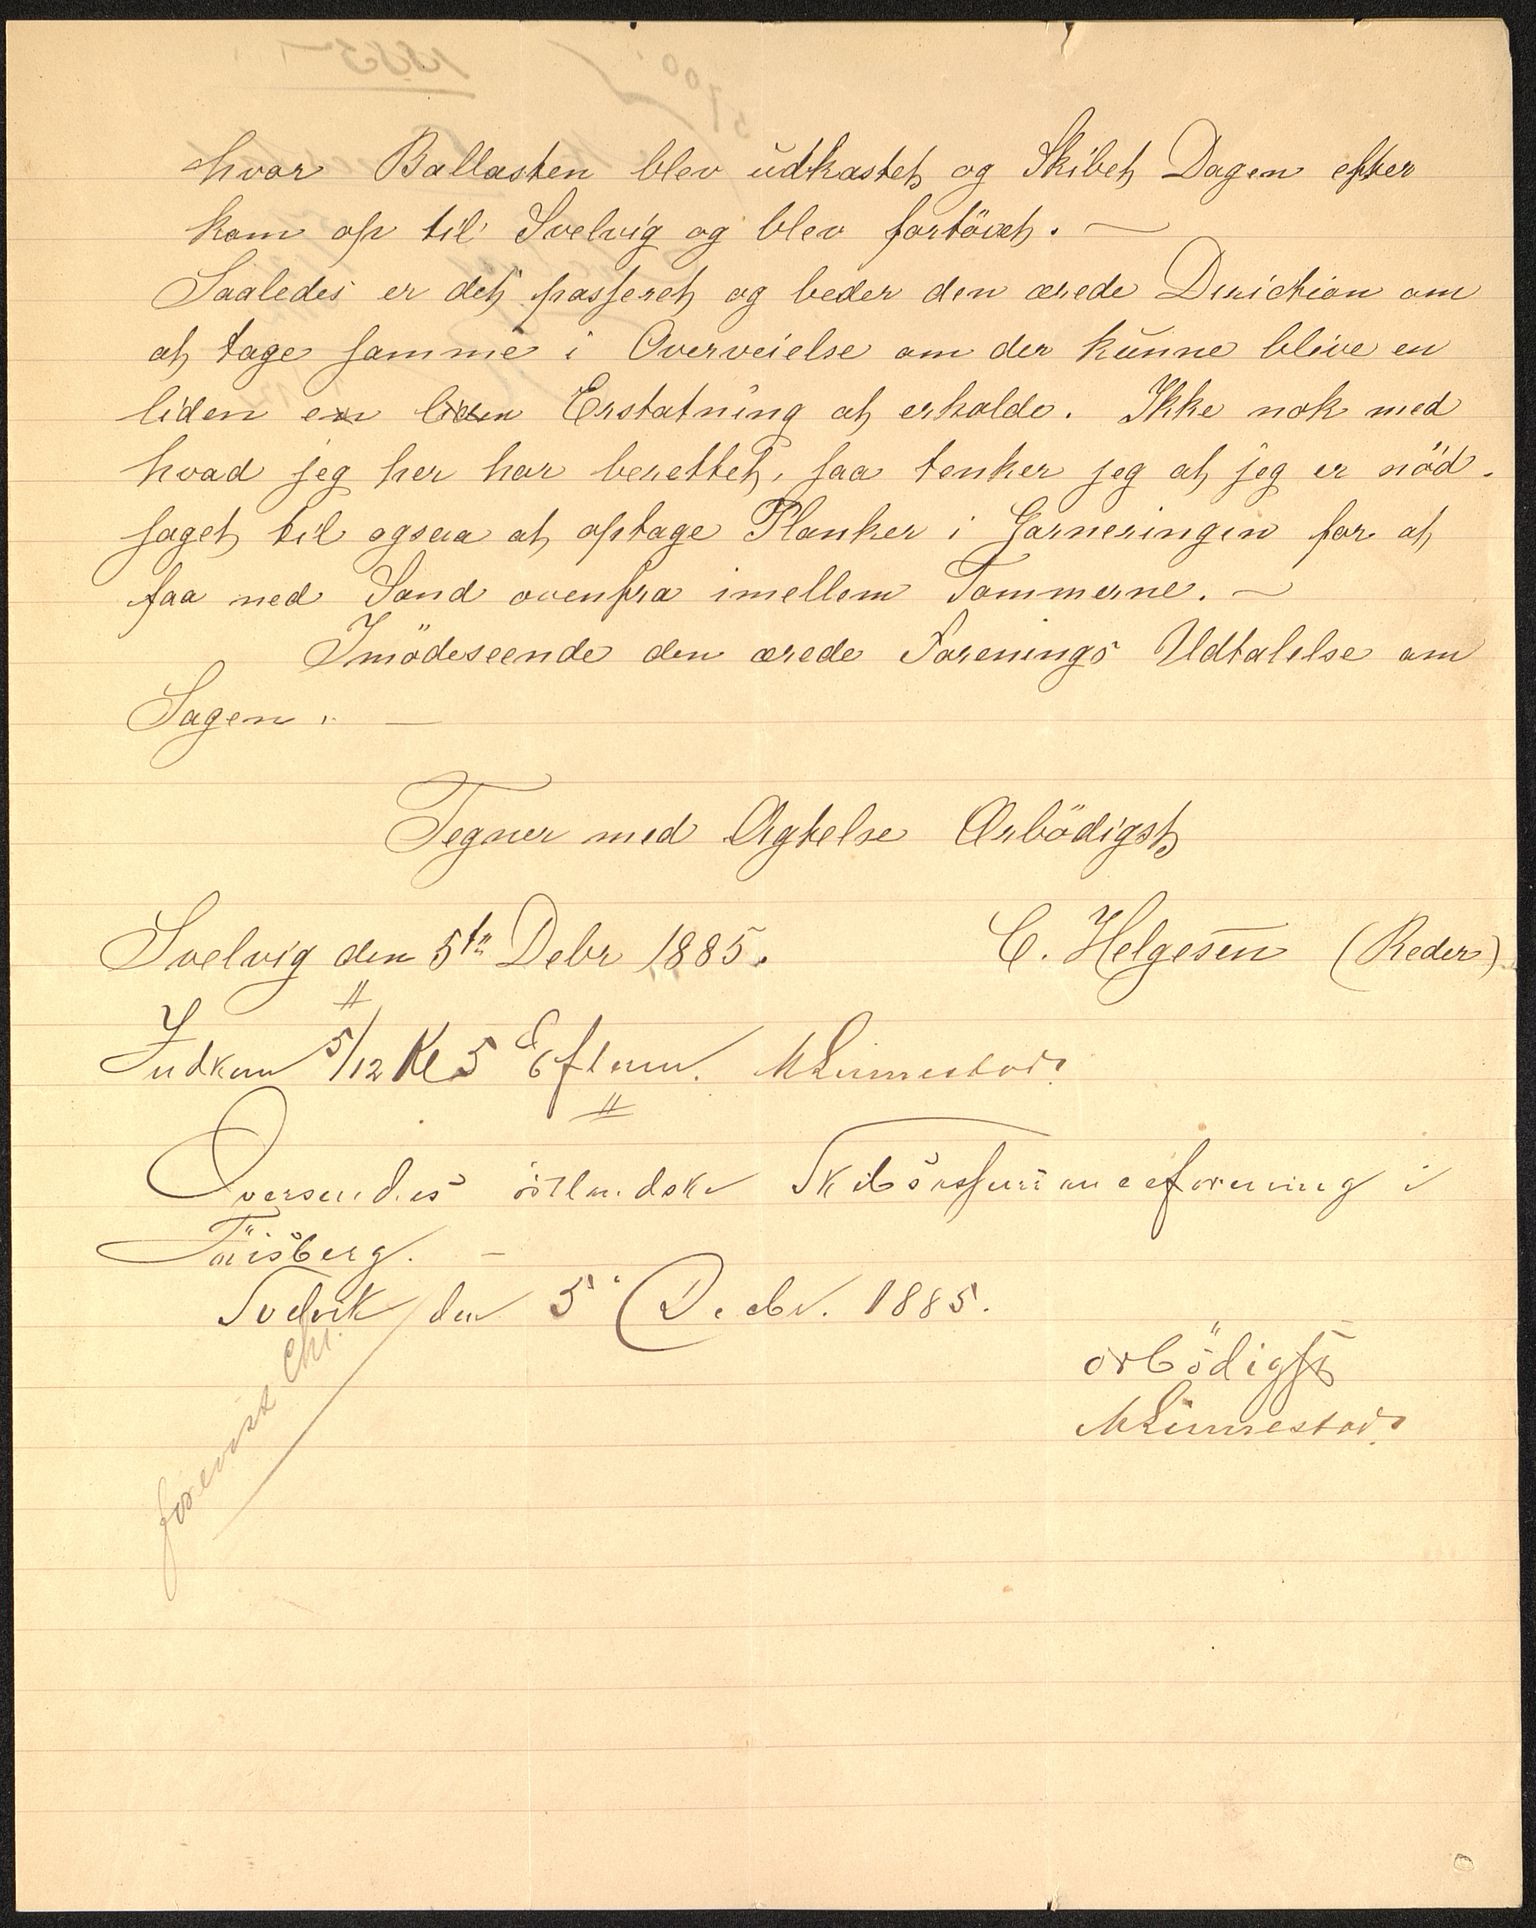 hvor Ballasten blev udkastet og Skibet Dagen efter
kom op til Svelvig og blev fortöiet. —
Saaledes er det passeret og beder den ærede Direktion om
at tage samme i Overveielse om der kunne blive en
liden en liden Erstatning at erholde. Ikke nok med
hvad jeg her har berettet, saa tenker jeg at jeg er nöd-
saget til ogsaa at optage Planker i Garneringen for at
faa ned Sand ovenfra imellem Tømmerne. —
Imödeseende den ærede Forenings Udtalelse om
Sagen. —
Tegner med Agtelse Ærbödigst
Svelvig den 5te Debr 1885. C. Helgesen (Reder)
Indkom 5/12 Kl 5 Efterm. M Linnestad.
Oversendes östlandske Skibsassuranceforening i
Tönsberg. —
Svelvik den 5 Decbr. 1885.
ærbödigst
M Linnestad.
forevist Chr.